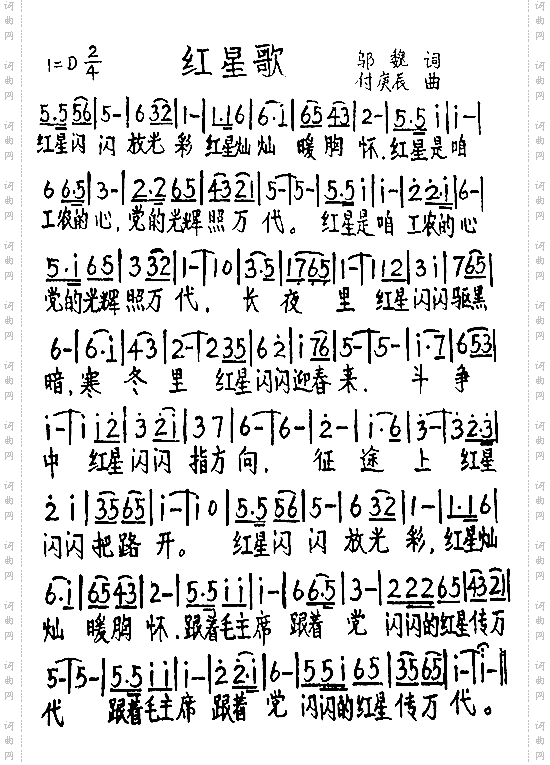 1=D 2/4 红星歌 邬 魏 词
付庚辰 曲
5.5 56|5-|6 32|1-|1.1 6|6.i|65 43|2-|5.5 i|i-|
红星闪 闪 放光 彩 红星灿灿 暖胸 怀.红星是咱
6 6.5|3-|2.2 65|43 21|5-|5-|5.5 i|i-|2 2.i|6-|
工农的心,党的光辉照万 代。 红星是咱 工农的心
5.i 6 5|3 32|1-|1 0|3.5|17 65|1-|1 12|3 i|7 65|
党的光辉 照万 代. 长 夜 里 红星闪闪驱黑
6-|6.i|4 3|2-|2 35|6 2|i 76|5-|5-|i.7|6 53|
暗,寒 冬 里 红星闪闪迎春 来. 斗 争
i-|i i2|3 2i|3 7|6-|6-|2-|i.6|3-|3 2.3|
中 红星闪闪 指方向, 征 途 上 红星
2 i|35 65|i-|i 0|5.5 56|5-|6 32|1-|1.1 6|
闪闪 把路 开。 红星闪 闪 放光 彩,红星灿
6.i|65 43|2-|5.5 i i|i-|6 6.5|3-|222 65|43 21|
灿 暖胸 怀.跟着毛主席 跟着 党 闪闪的红星传万
5-|5-|5.5 i i|i-|2 2.i|6-|55i 65|35 65|i-|i-‖
代 跟着毛主席 跟着 党 闪闪的红星传万 代。
词曲网